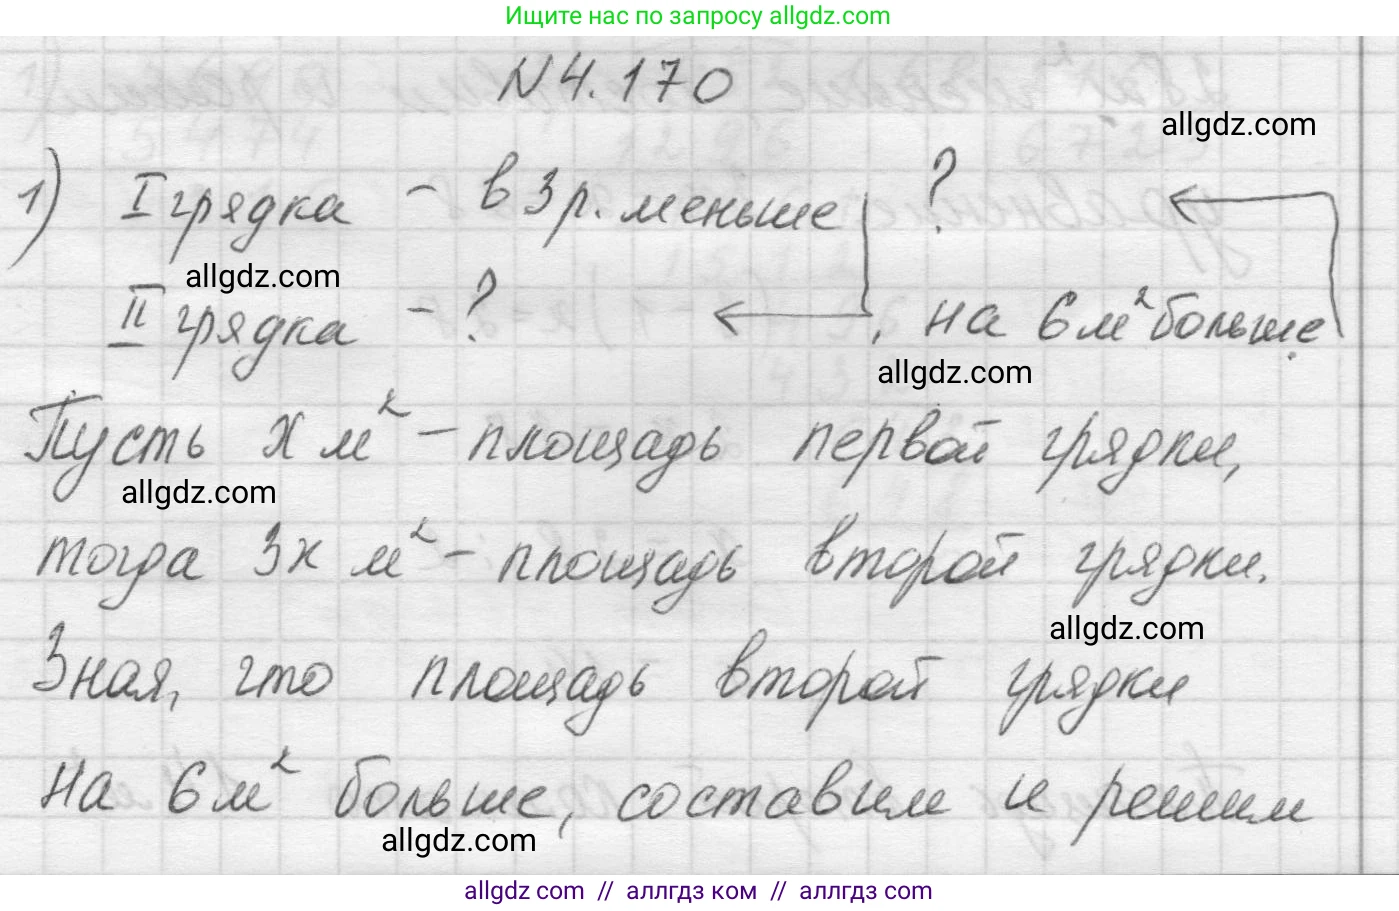 Ищите нас по запросу allgdz.com
N 4.170
allgdz.com
1) I грядка - в 3 р. меньше ?
allgdz.com
II грядка - ? , на 6 м² больше
allgdz.com
Пусть x м² - площадь первой грядки,
allgdz.com
тогда 3x м² - площадь второй грядки.
allgdz.com
Зная, что площадь второй грядки
на 6 м² больше, составим и решим
allgdz.com
allgdz com // аллгдз ком // аллгдз com